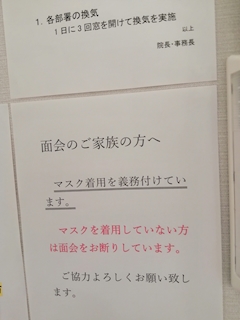 1. 各部署の換気
1日に3回窓を開けて換気を実施
以上
院長・事務長
面会のご家族の方へ
マスク着用を義務付けてい
ます。
マスクを着用していない方
は面会をお断りしています。
ご協力よろしくお願い致し
ます。